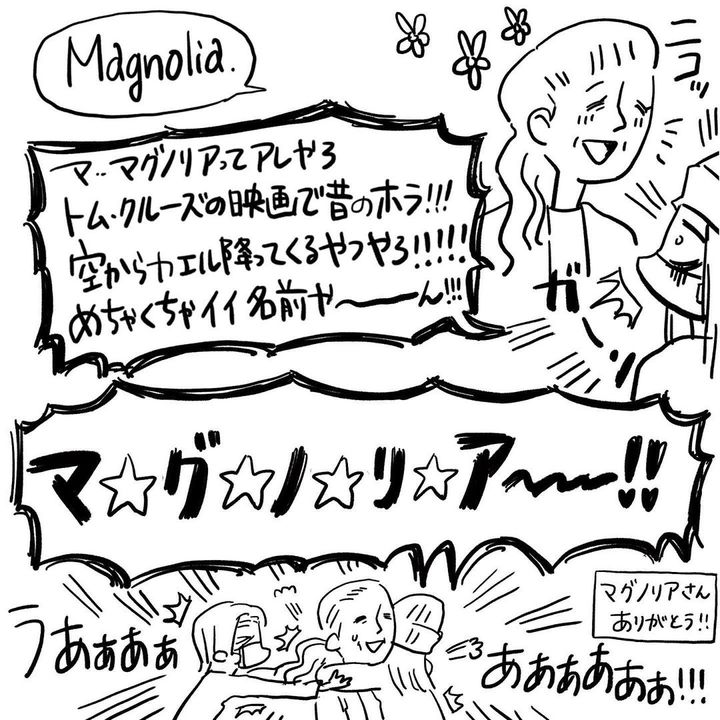 Magnolia.
ニコッ
マ‥マグノリアってアレやろ
トム・クルーズの映画で昔のホラ!!!
空からカエル降ってくるやつやろ!!!!!
めちゃくちゃイイ名前や〜ん!!!
ガーン
マ☆グ☆ノ☆リ☆ア〜〜!!
マグノリアさん
ありがとう!!
うあぁぁぁぁ
あぁぁぁぁぁぁ!!!